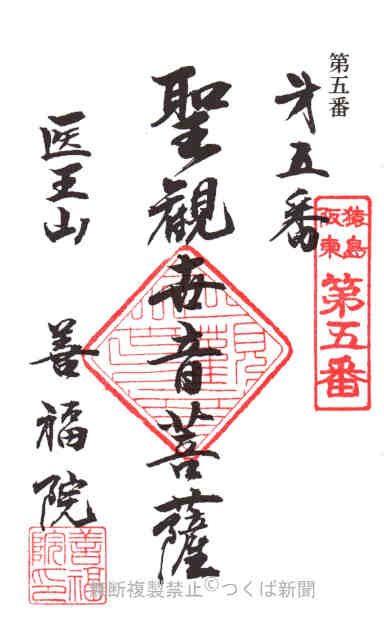 第五番
㐧五番
猿島
阪東
第五番
聖観世音菩薩
医王山
善福院
善福
院印
無断複製禁止©つくば新聞